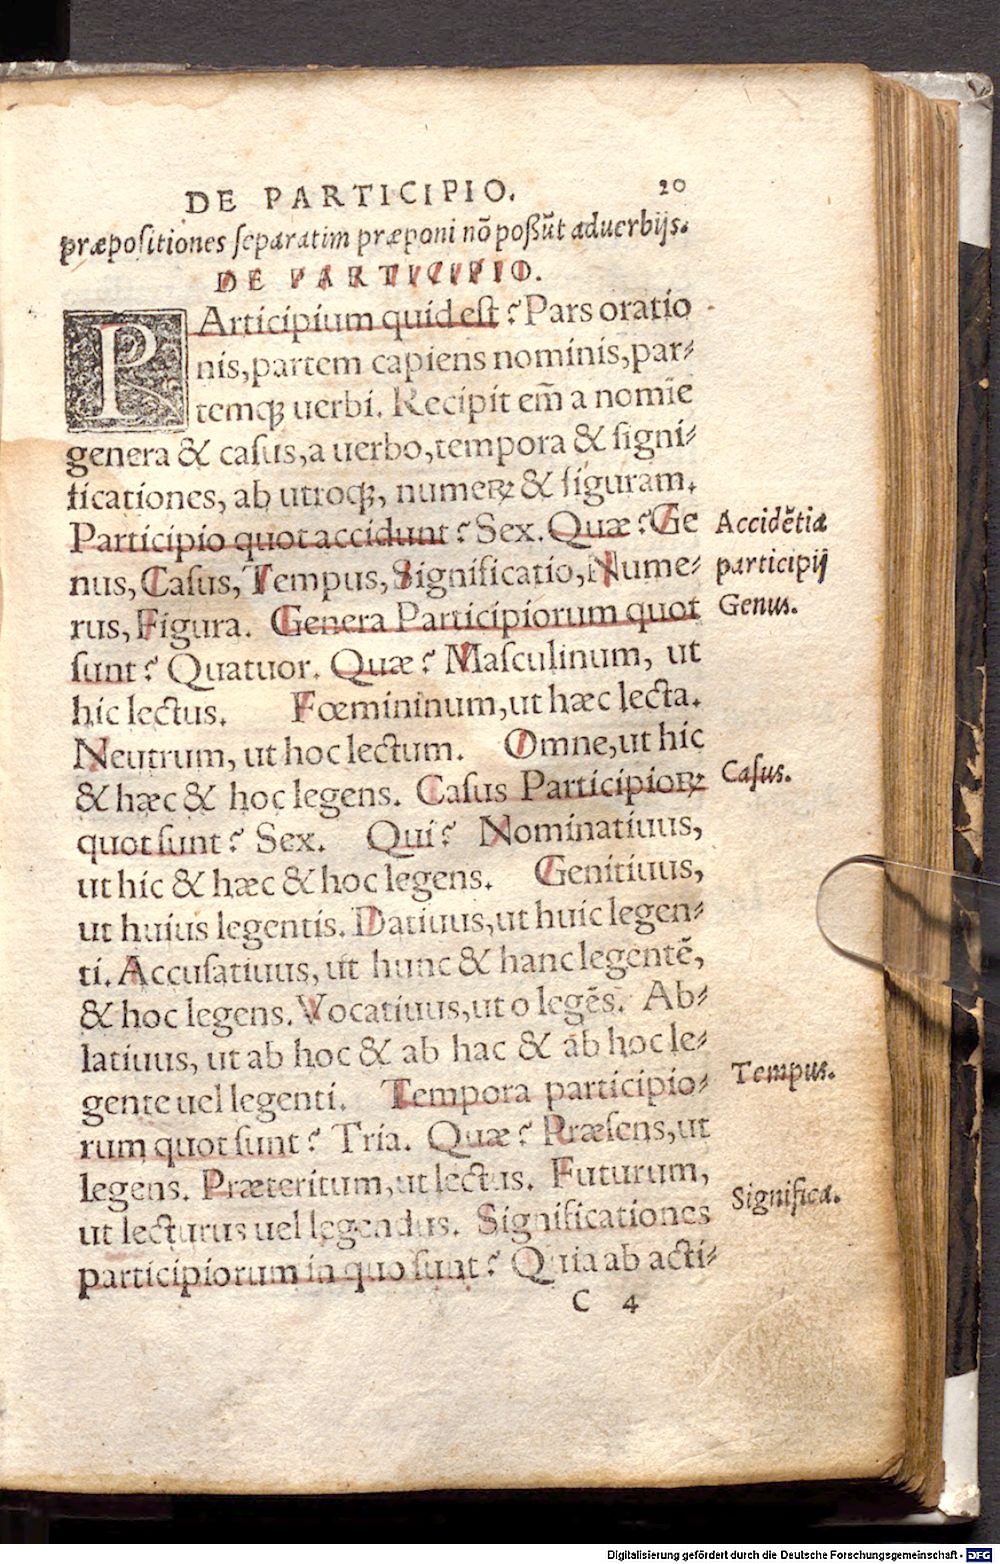 DE PARTICIPIO. 20
præpositiones ſeparatim præponi nō poßūt aduerbijs.
DE PARTICIPIO.
PArticipium quid eſt? Pars oratio
nis, partem capiens nominis, par⸗
temqꝫ uerbi. Recipit em̄ a nomīe
genera & caſus, a uerbo, tempora & ſigni⸗
ficationes, ab utroqꝫ, numeꝝ & figuram.
Participio quot accidunt? Sex. Quæ? Ge
nus, Caſus, Tempus, Significatio, Nume⸗
rus, Figura. Genera Participiorum quot
ſunt? Quatuor. Quæ? Maſculinum, ut
hic lectus. Fœmininum, ut hæc lecta.
Neutrum, ut hoc lectum. Omne, ut hic
& hæc & hoc legens. Caſus Participioꝝ
quot ſunt? Sex. Qui? Nominatiuus,
ut hic & hæc & hoc legens. Genitiuus,
ut huius legentis. Datiuus, ut huic legen⸗
ti. Accuſatiuus, ut hunc & hanc legentē,
& hoc legens. Vocatiuus, ut o legēs. Ab⸗
latiuus, ut ab hoc & ab hac & ab hoc le⸗
gente uel legenti. Tempora participio⸗
rum quot ſunt? Tria. Quæ? Præſens, ut
legens. Præteritum, ut lectus. Futurum,
ut lecturus uel legendus. Significationes
participiorum in quo ſunt? Quia ab acti⸗
C 4
Accidētia
participij
Genus.
Caſus.
Tempus.
Significa.
Digitalisierung gefördert durch die Deutsche Forschungsgemeinschaft - DFG